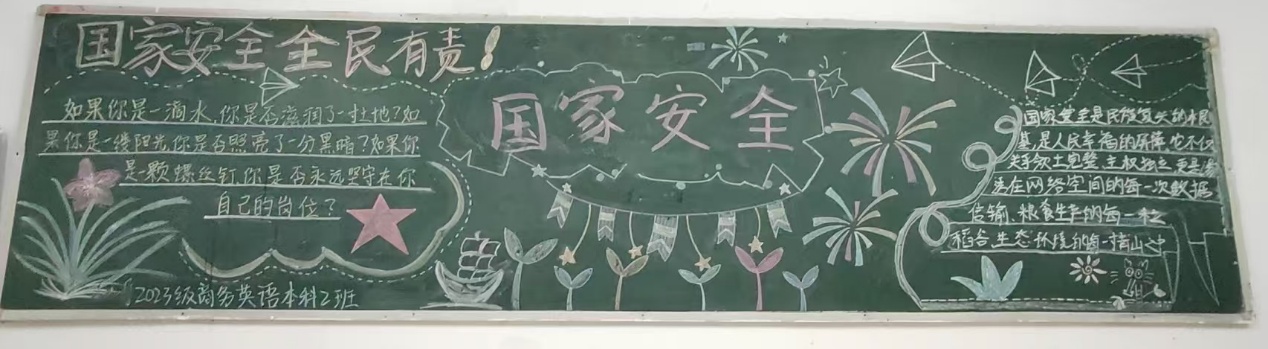 国家安全全民有责!
如果你是一滴水,你是否滋润了一寸土地?如
果你是一缕阳光你是否照亮了一分黑暗?如果你
是一颗螺丝钉你是否永远坚守在你
自己的岗位?
2023级商务英语本科2班
国家安全
国家安全是民族复兴的根
基,是人民幸福的屏障,它不仅
关乎领土完整、主权独立,更是渗
透在网络空间的每一次数据
传输、粮食生产的每一粒
稻谷、生态环境的每一寸青山中